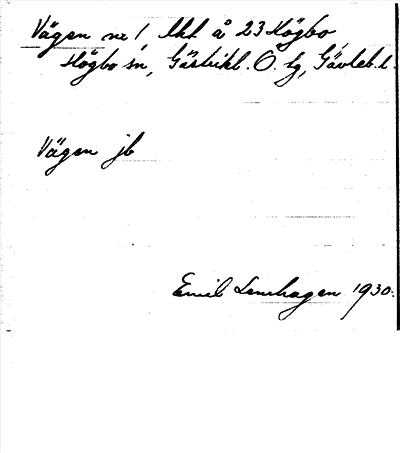 Vägen nr 1 lht å 23 Högbo
Högbo sn, Gästrikl. Ö. tg, Gävleb. l.
Vägen jb
Emil Lenhagen 1930.